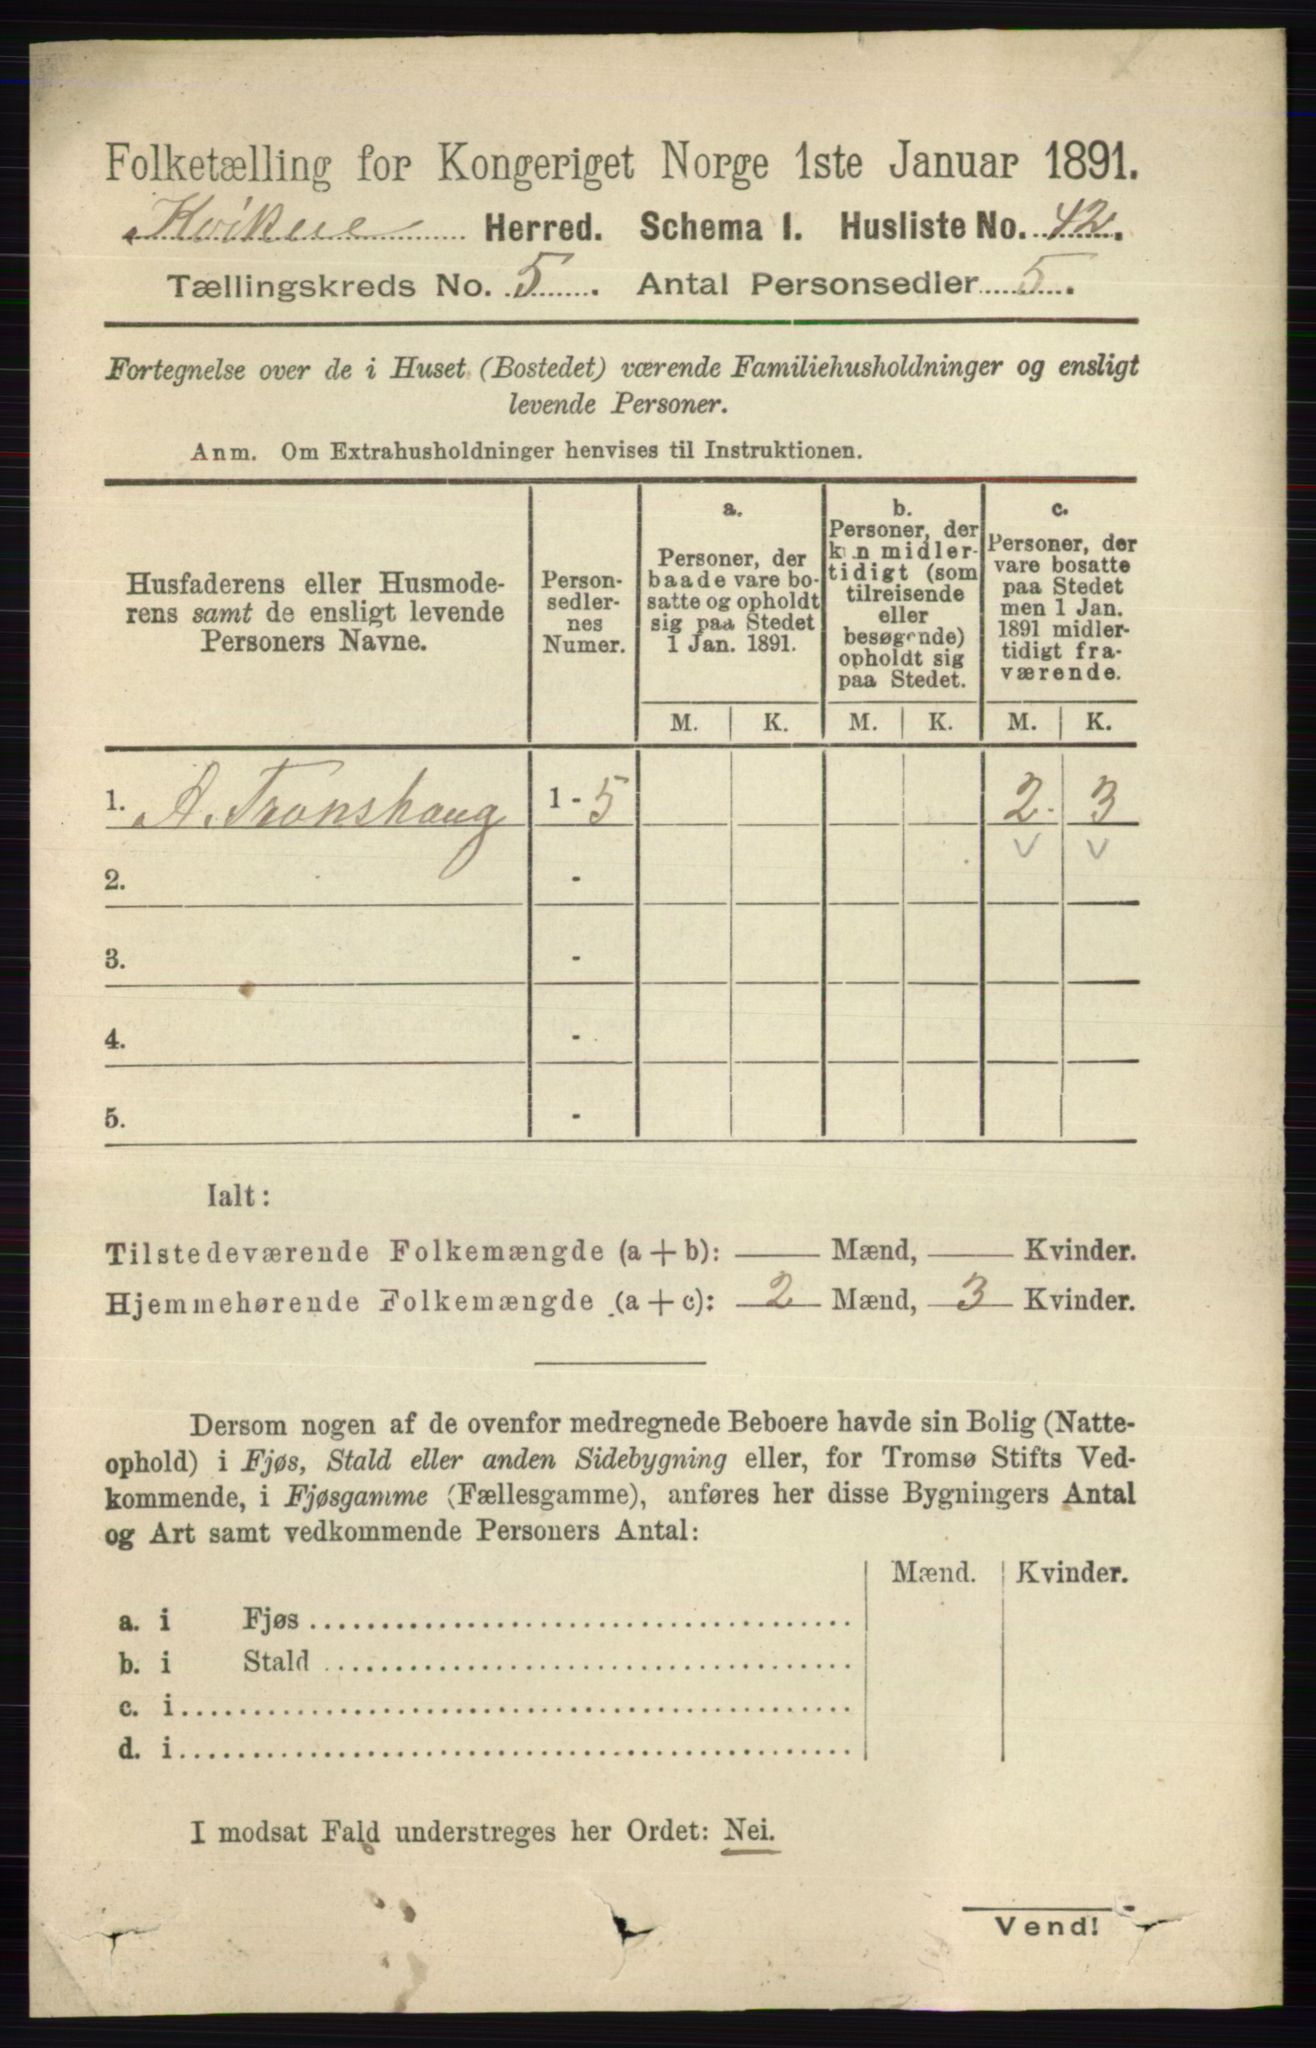 Folketælling for Kongeriget Norge 1ste Januar 1891.
Kvikne Herred. Schema I. Husliste No. 42.
Tællingskreds No. 5. Antal Personsedler 5.
Fortegnelse over de i Huset (Bostedet) værende Familiehusholdninger og ensligt
levende Personer.
Anm. Om Extrahusholdninger henvises til Instruktionen.
Husfaderens eller Husmode-
rens samt de ensligt levende
Personers Navne.
Person-
sedler-
nes
Numer.
a.
Personer, der
baade vare bo-
satte og opholdt
sig paa Stedet
1 Jan. 1891.
b.
Personer, der
kun midler-
tidigt (som
tilreisende
eller
besøgende)
opholdt sig
paa Stedet.
c.
Personer, der
vare bosatte
paa Stedet
men 1 Jan.
1891 midler-
tidigt fra-
værende.
M. K. M. K. M. K.
1. A. Tronshaug 1 - 5 2 3
2. -
3. -
4. -
5. -
Ialt:
Tilstedeværende Folkemængde (a + b): Mænd, Kvinder.
Hjemmehørende Folkemængde (a + c): 2 Mænd, 3 Kvinder.
Dersom nogen af de ovenfor medregnede Beboere havde sin Bolig (Natte-
ophold) i Fjøs, Stald eller anden Sidebygning eller, for Tromsø Stifts Ved-
kommende, i Fjøsgamme (Fællesgamme), anføres her disse Bygningers Antal
og Art samt vedkommende Personers Antal:
Mænd. Kvinder.
a. i Fjøs
b. i Stald
c. i
d. i
I modsat Fald understreges her Ordet: Nei.
Vend!